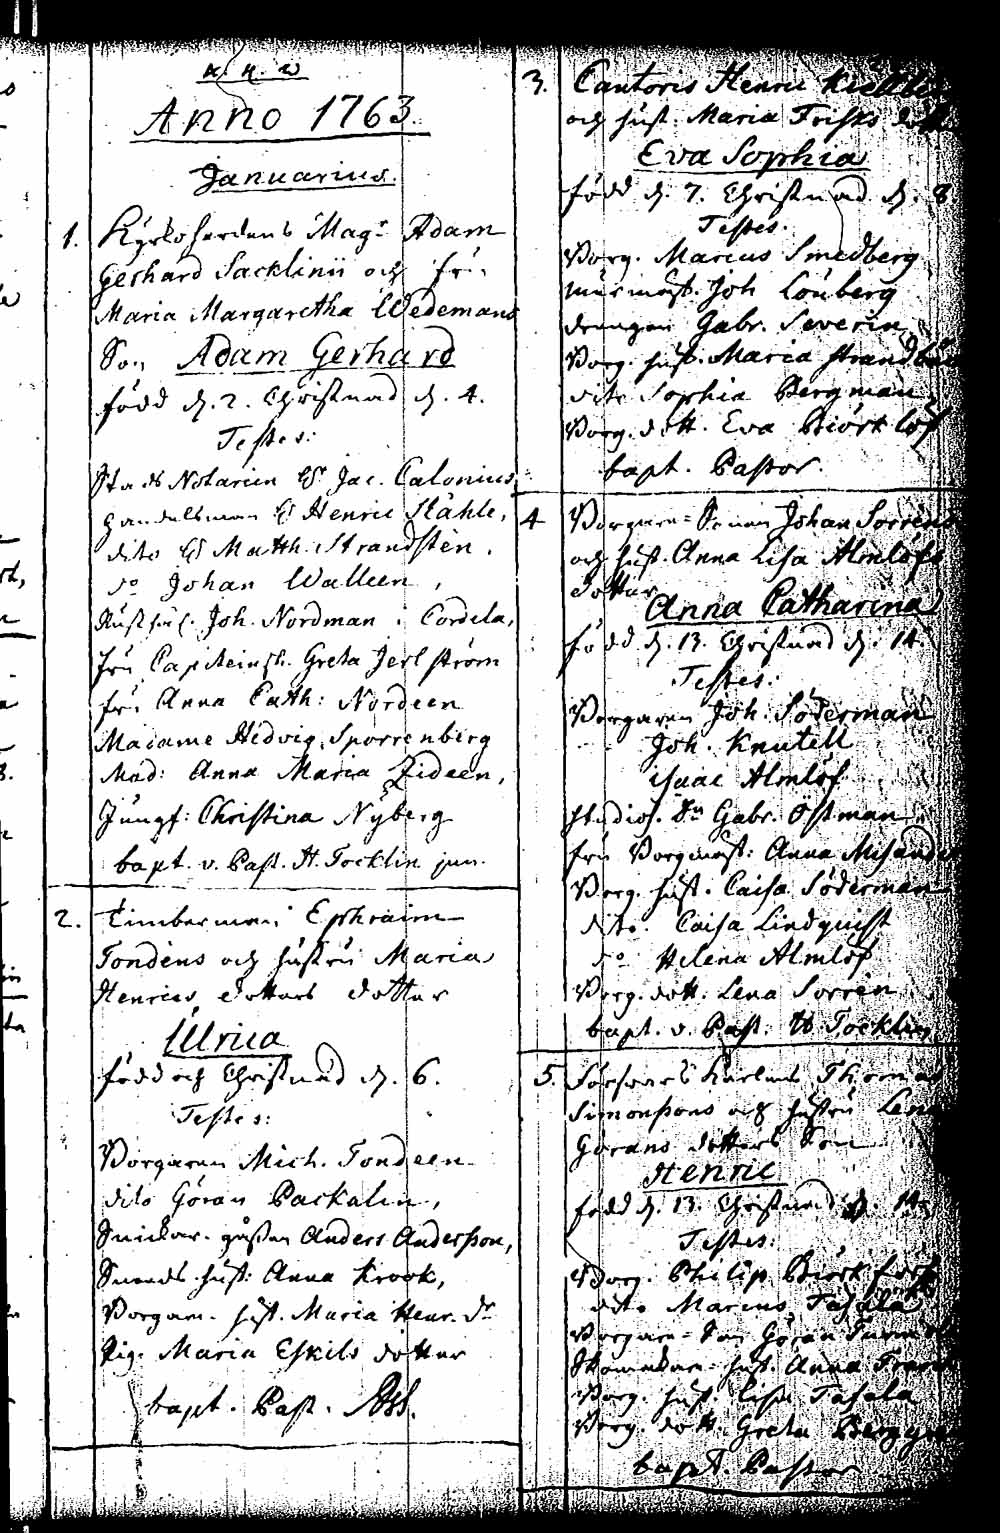 Anno 1763.
Januarius.
1. Kyrkoherdens Magr Adam
Gerhard Sacklinii och fru
Maria Margaretha Wedemans
Son Adam Gerhard
född d. 2. Christnad d. 4.
Testes:
Stads Notarien Hr Jac. Calonius,
Handelsman Hr Henric Ståhle,
dito Hr Matth. Strandstén,
do Johan Walleen,
Joh. Nordman i Cordela,
fru Capiteinsk. Greta Jerlström
fru Anna Cath: Nordeen
Madame Hedvig Sporrenberg
Mad: Anna Maria Zideen,
Jungf: Christina Nyberg
bapt. v. Past. H. Tocklin jun.
2. Timberman Ephraim
Tondéns och hustru Maria
Henrics dotters dotter
Ulrica
född och Christnad d. 6.
Testes:
Borgaren Mich. Tondeen
dito Göran Packalen,
Snickar-gesällen Anders Andersson,
hust: Anna Krook,
Borgar. hust. Maria Henr. dr
Pig. Maria Eskils dotter
bapt. Past.
3. Cantoris Henric
och hust. Maria Frisks dott.
Eva Sophia
född d. 7. Christnad d. 8.
Testes.
Borg. Marcus Smedberg
murmäst. Joh Lönberg
drengen Gabr. Severin
Borg. hust. Maria
dito Sophia Bergman
Borg. dott. Eva Biörklöf
bapt. Pastor.
4 Borgare-Sonen Johan Sorréns
och hust. Anna Lisa Almlöfs
dotter
Anna Catharina
född d. 13. Christnad d. 14.
Testes:
Borgaren Joh. Söderman
Joh. Knutell
Isaac Almlöf
Studios. Dn Gabr. Östman
fru Borgmäst: Anna
Borg. hust. Caisa Söderman
dito. Caisa Lindquist
do Helena Almlöf
Borg. dott. Lena Sorrén
bapt. v. Past. H. Tocklin
5. Thomas
Simonssons och hustru Lena
Görans dotters Son
Henric
född d. 13. Christnad d. 14.
Testes:
Borg. Philip
dito Marcus Tahala
Borgare-Son Göran
hust. Anna
Borg. hust. Lisa Tahala
Borg. dott. Greta
bapt. Pastor